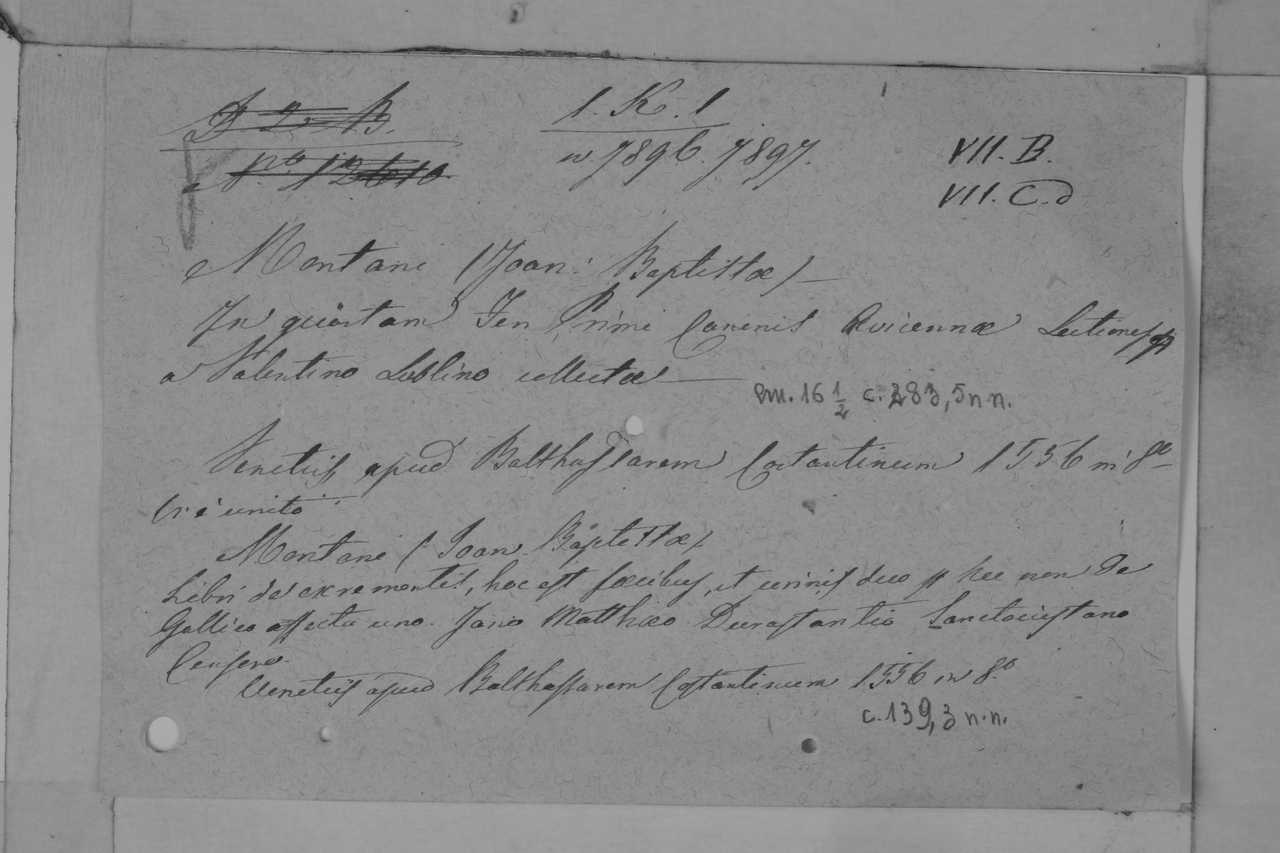 1. K. 1
n 7896. 7897.
VII. B.
VII. C. d
Montani (Joan: Baptistæ)
In quartam Fen Primi Canonis Avicennæ Lectiones
a Valentino Lublino collectæ
cm. 16 1/2 c. 283, 5 n n.
Venetiis apud Balthassarem Costantinum 1556 in 8°
(vi è unito
Montani (Joan. Baptistæ)
Libri de excrementis, hoc est fæcibus, et urinis duo nec non de
Gallico affectu uno. Jano Matthæo Durastantio Sanctojustano
Censore
Venetiis apud Balthassarem Costantinum 1556 in 8°
c. 139, 3 n. n.